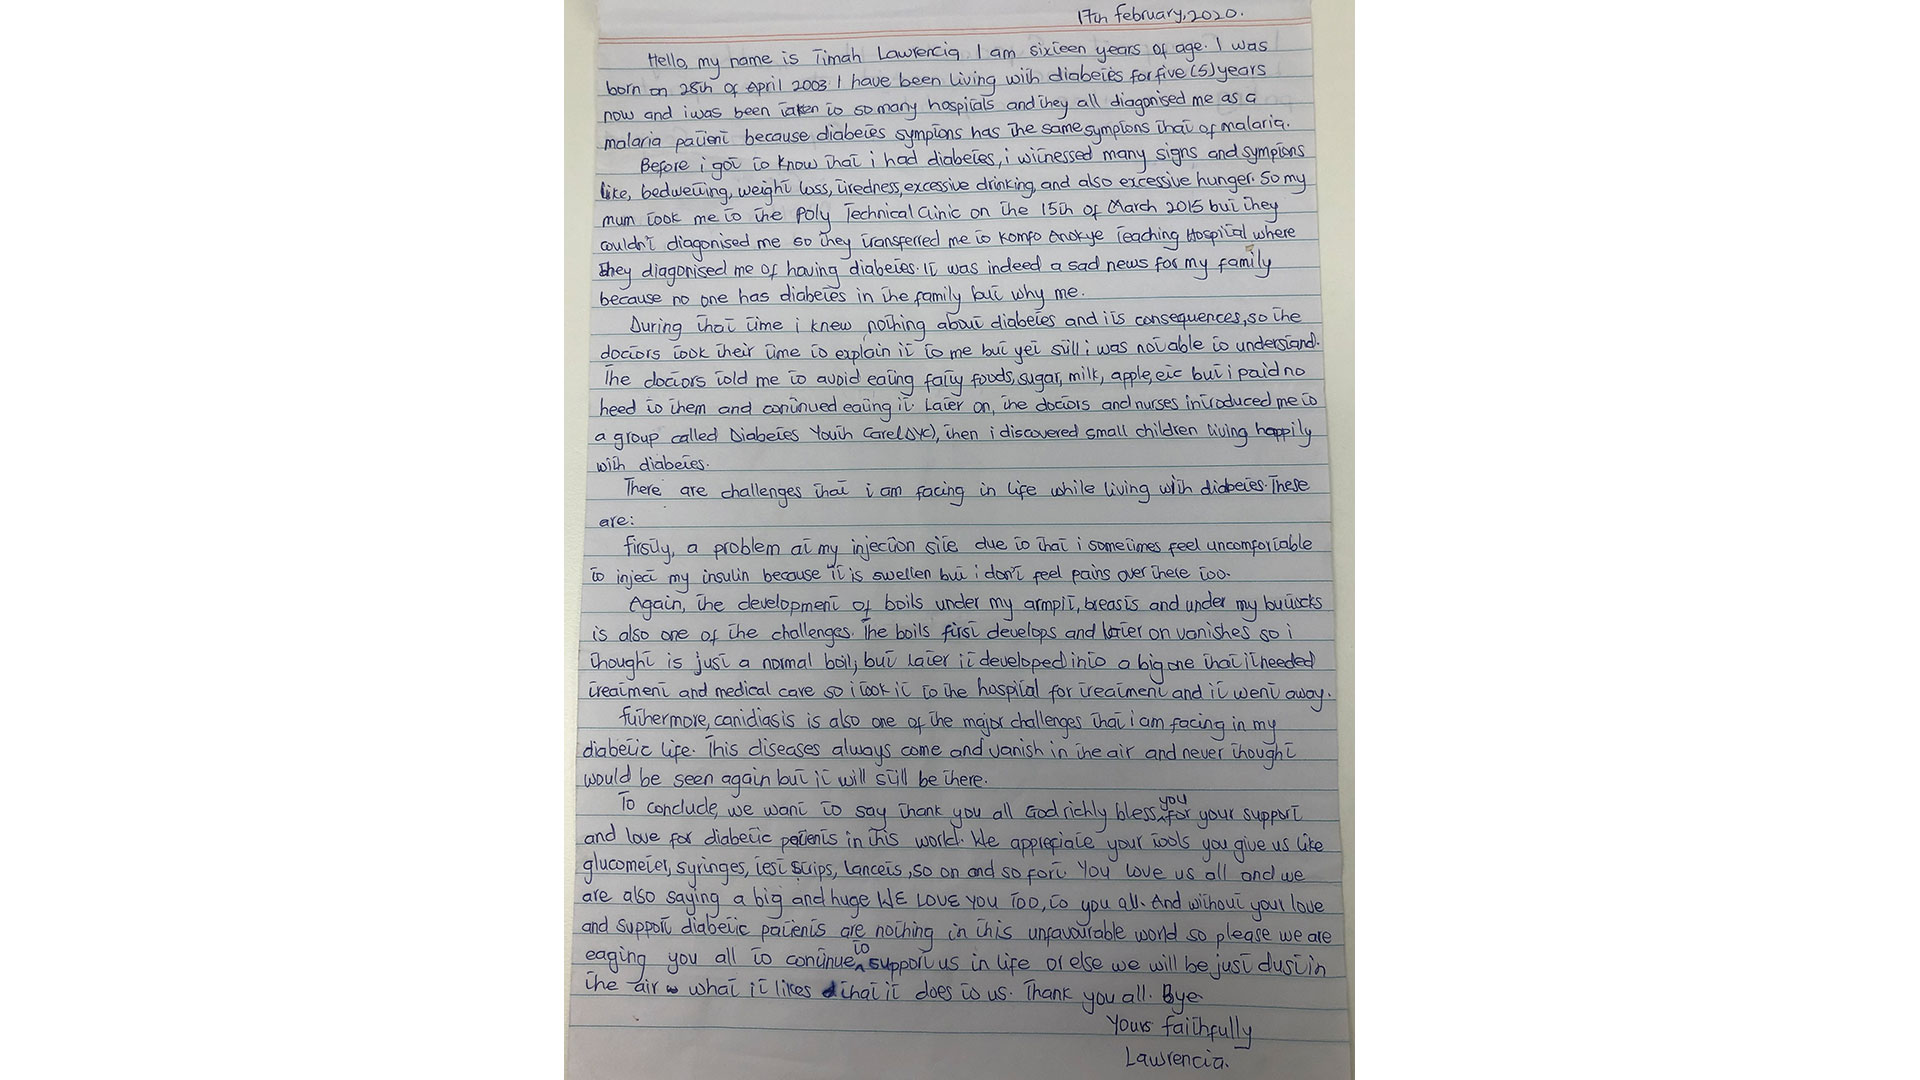 17th february, 2020.
Hello, my name is Timah Lawrencia. I am sixteen years of age. I was
born on 28th of April 2003. I have been living with diabetes for five (5) years
now and i was been taken to so many hospitals and they all diagonised me as a
malaria patient because diabetes symptons has the same symptons that of malaria.
Before i got to know that i had diabetes, i witnessed many signs and symptons
like, bedwetting, weight loss, tiredness, excessive drinking, and also excessive hunger. So my
mum took me to the Poly Technical Clinic on the 15th of March 2015 but they
couldn't diagonised me so they transferred me to Komfo Anokye Teaching Hospital where
they diagonised me of having diabetes. It was indeed a sad news for my family
because no one has diabetes in the family but why me.
During that time i knew nothing about diabetes and its consequences, so the
doctors took their time to explain it to me but yet still i was not able to understand.
The doctors told me to avoid eating fatty foods, sugar, milk, apple, etc but i paid no
heed to them and continued eating it. Later on, the doctors and nurses introduced me to
a group called Diabetes Youth Care (DYC), then i discovered small children living happily
with diabetes.
There are challenges that i am facing in life while living with diabetes. These
are:
firstly, a problem at my injection site due to that i sometimes feel uncomfortable
to inject my insulin because it is swellen but i don't feel pains over there too.
Again, the development of boils under my armpit, breasts and under my buttocks
is also one of the challenges. The boils first develops and later on vanishes so i
thought is just a normal boil, but later it developed into a big one that it needed
treatment and medical care so i took it to the hospital for treatment and it went away.
futhermore, canidiasis is also one of the major challenges that i am facing in my
diabetic life. This diseases always come and vanish in the air and never thought
would be seen again but it will still be there.
To conclude, we want to say thank you all God richly bless you for your support
and love for diabetic patients in this world. We appreciate your tools you give us like
glucometer, syringes, test strips, lancets, so on and so fort. You love us all and we
are also saying a big and huge WE LOVE YOU TOO, to you all. And without your love
and support diabetic patients are nothing in this unfavourable world so please we are
eaging you all to continue to support us in life or else we will be just dust in
the air what it likes that it does to us. Thank you all. Bye
Yours faithfully
Lawrencia.